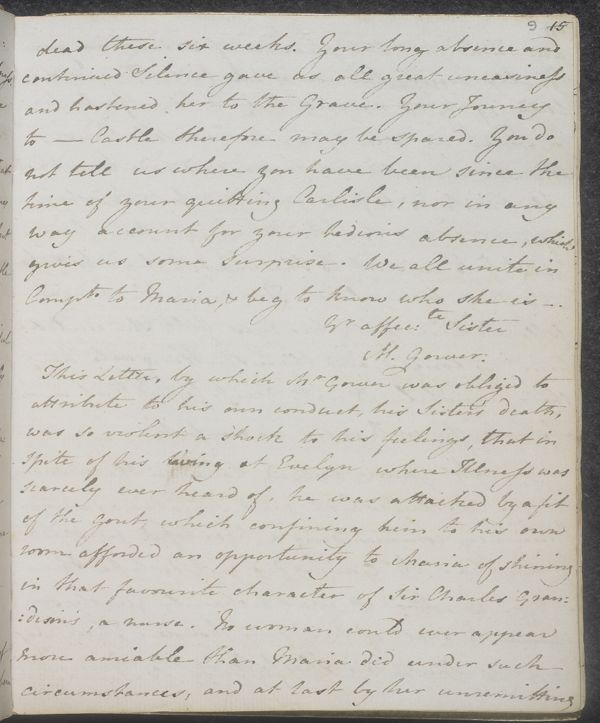 9 15
dead these six weeks. Your long absence and
continued Silence gave us all great uneasiness
and hastened her to the Grave. Your Journey
to — Castle therefore may be spared. You do
not tell us where you have been since the
time of your quitting Carlisle, nor in any
way account for your tedious absence, which
gives us some surprise. We all unite in
Compts. to Maria, & beg to know who she is —.
Yr affec:te Sister
M. Gower.
This Letter, by which Mr Gower was obliged to
attribute to his own conduct, his Sisters death,
was so violent a shock to his feelings, that in
spite of his living at Evelyn where Illness was
scarcely ever heard of, he was attacked by a fit
of the gout, which confining him to his own
room afforded an opportunity to Maria of shining
in that favourite character of Sir Charles Gran:
:dison's, a nurse. No woman could ever appear
more amiable than Maria did under such
circumstances, and at last by her unremitting